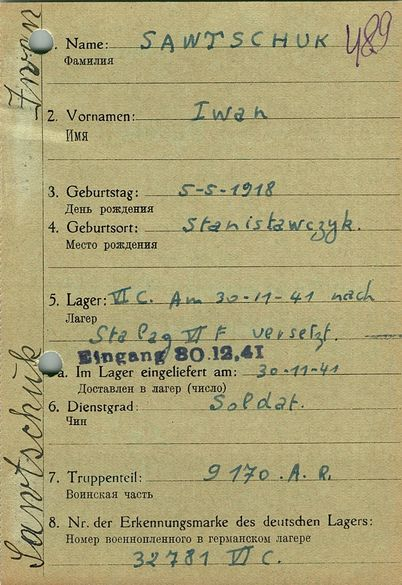 1. Name: SAWTSCHUK
489
Фамилия
2. Vornamen: Iwan
Имя
3. Geburtstag: 5-5-1918
День рождения
4. Geburtsort: Stanisławczyk.
Место рождения
5. Lager: VI C. Am 30-11-41 nach
Лагер
Stalag VI F versetzt.
Eingang 30.12.41
a. Im Lager eingeliefert am: 30-11-41
Доставлен в лагер (число)
6. Dienstgrad: Soldat.
Чин
7. Truppenteil: 9 170. A. R.
Воинская часть
8. Nr. der Erkennungsmarke des deutschen Lagers:
Номер военнопленного в германском лагере
32781 VI C.
Sawtschuk Iwan